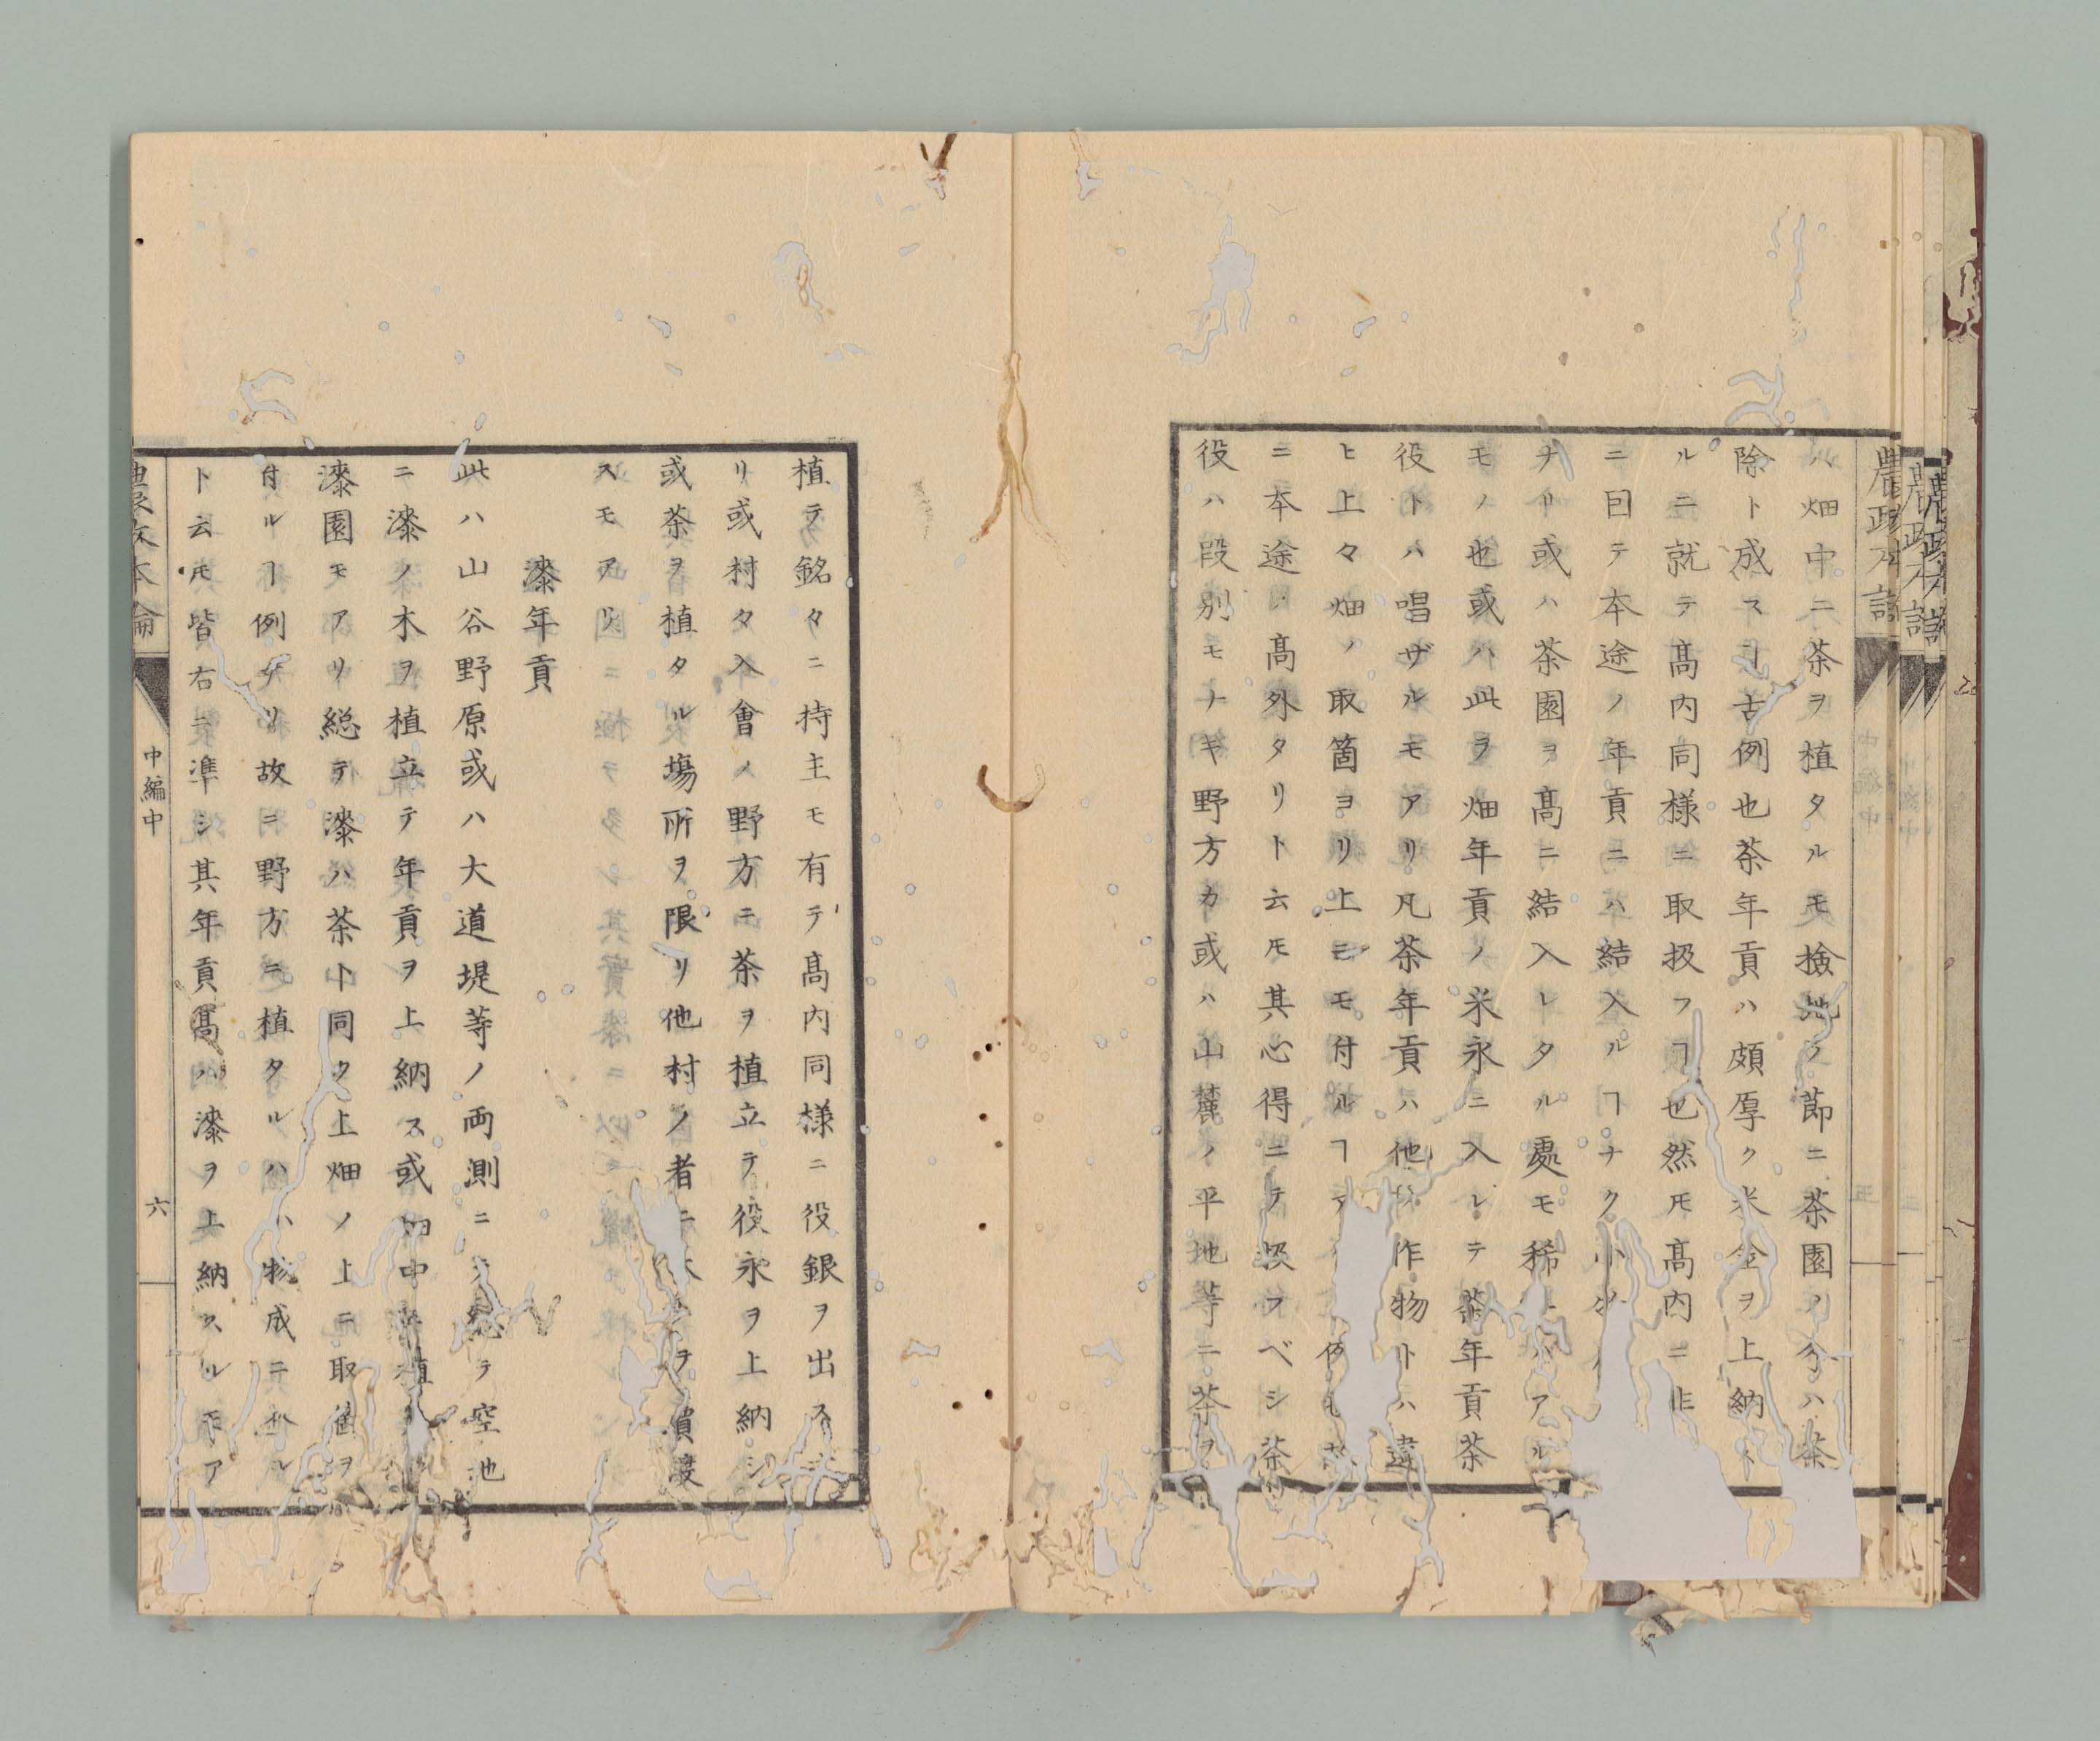 農政本論
ハ畑中ニ茶ヲ植タルモ撿地ノ節ニ茶園ノ分ハ茶
除ト成スヿ古例也茶年貢ハ頗厚ク米金ヲ上納
ルニ就テ髙内同様ニ取扱フヿ也然𪜈髙内ニ非
ニ因テ本途ノ年貢ニハ結入ルヿナク小物
ナリ或ハ茶園ヲ髙ニ結入レタル處モ稀ニハアル
モノ也或ハ此ヲ畑年貢ノ米永ニ入レテ茶年貢茶
役トハ唱ザルモアリ凡茶年貢ハ他作物トハ違
ヒ上々畑ノ取箇ヨリ上ニモ付ルヿ例モ
ニ本途ノ髙外タリト云𪜈其心得ニテ扱フベシ茶
役ハ段別モナキ野方カ或ハ山麓ノ平地等ニ茶ヲ
植テ銘々ニ持主モ有テ髙内同様ニ役銀ヲ出ス
リ或村々入會ノ野方ニ茶ヲ植立テ役永ヲ上納シ
或茶ヲ植タル塲所ヲ限リ他村ノ者ニテ賃渡
スモアリ
漆年貢
此ハ山谷野原或ハ大道堤等ノ両測ニ総テ空池
ニ漆ノ木ヲ植立テ年貢ヲ上納ス或畑中ニ植
漆園モアリ総テ漆ハ茶ト同ク上畑ノ上ニ取箇ヲ
付ルヿ例ナリ故ニ野方ニ植タルハ小物成ニ
ト云𪜈皆右ニ準シ其年貢髙ハ漆ヲ上納スルモア
農政本論
中編中
六